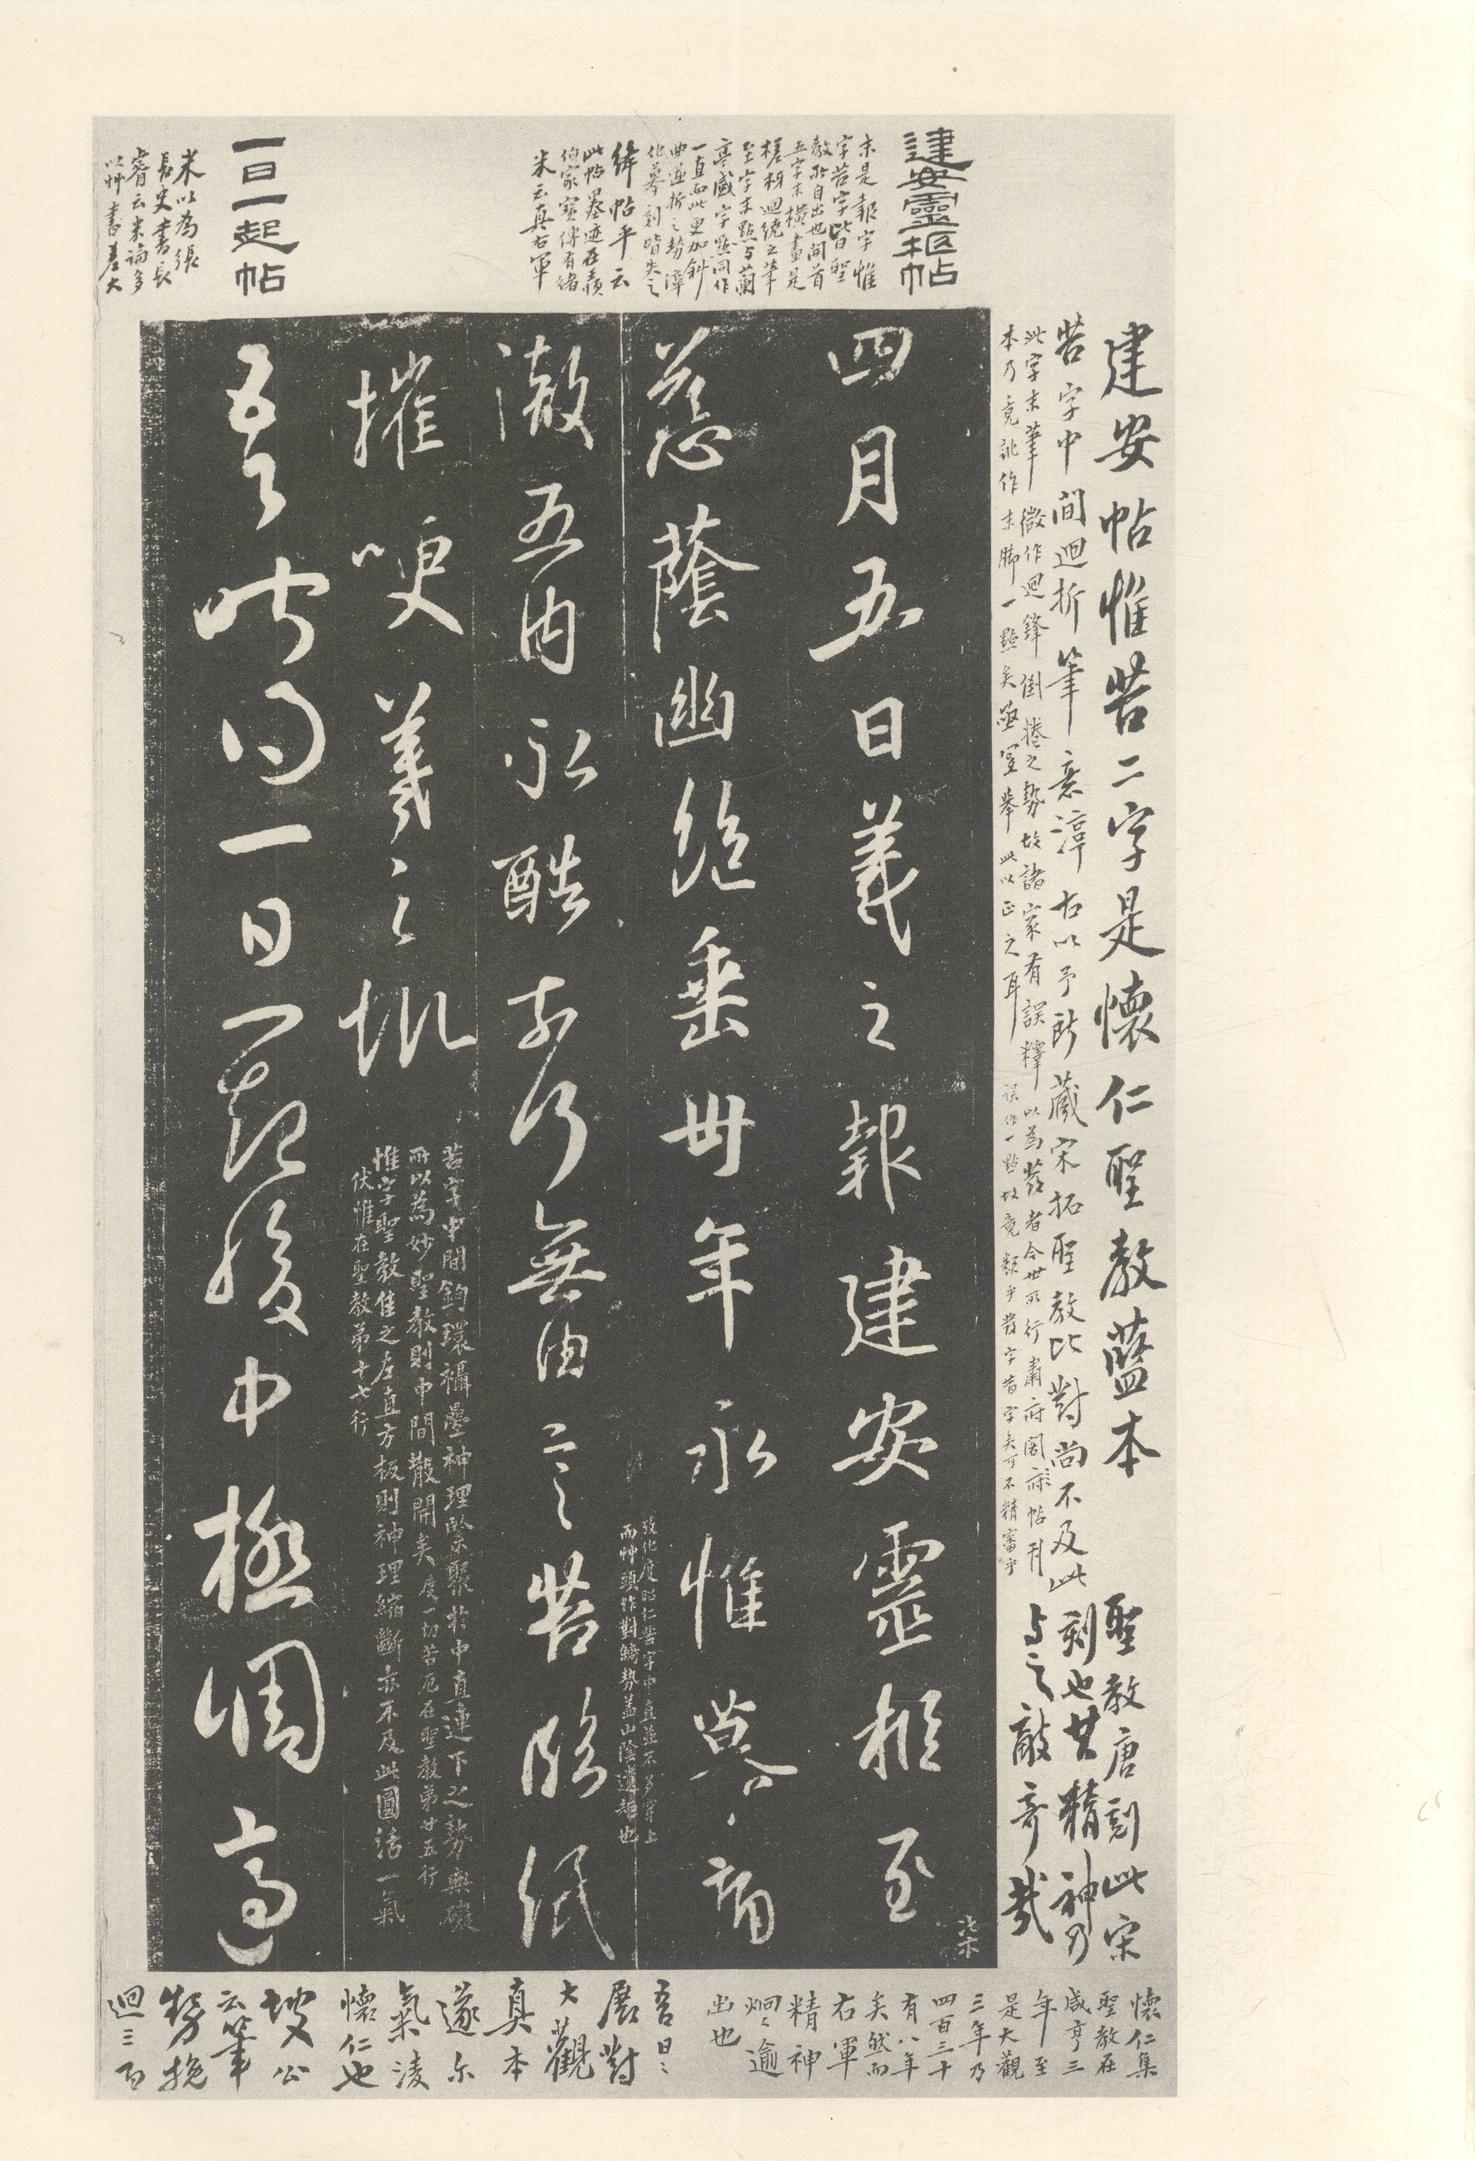 建安帖惟苦二字是懷仁聖教藍本
聖教唐刻此宋
苦字中間迴折筆意漳右以予所藏宋拓聖教比對尚不及此
刻也其精神乃
此字末筆微作迴鋒倒捲之勢故諸家有誤釋以為
者今世所行肅府閣
帖刊
本乃竟訛作末脚一點矣
舉此以正之耳
誤作一點故竟類乎
字昔字矣可不精審乎
与之敵奇哉
建安靈柩帖
末是報字惟
字苦字皆聖
教所自出也開首
五字末橫畫是
迴繞之筆
至字末點与蘭
亭盛字點同作
一直而此更加斜
曲
折之勢
化摹刻皆失之
絳帖平云
此帖墨迹在
家寶傳有緒
米云真右軍
一日一起帖
米以為張
長史書
長
睿云米論多
以艸書
大
四月五日羲之報建安靈柩至
慈蔭幽絕垂卅年永惟崩慕痛
徹五内永酷奈何無由言苦臨紙
摧哽羲之
吾唯得一日一起腹中極調適
苦字中間鉤環襵疊神理緊聚於中直連下之勢無礙
所以為妙聖教則中間散開矣度一切苦厄在聖教第廿五行
惟字聖教隹之左直方板則神理縮斷亦不及此圓活一氣
伏惟在聖教第十七行
化度
仁苦字中直並不
穿上
而艸頭作對
勢蓋山陰遺矩也
懷仁集
聖教在
咸亨三
年至
是大觀
三年乃
四百三十
有八年
矣然而
右軍
精神
炯炯逾
出也
吾日日
展對
大觀
真本
遂尔
氣淩
懷仁也
坡公
云筆
勢
迴三百